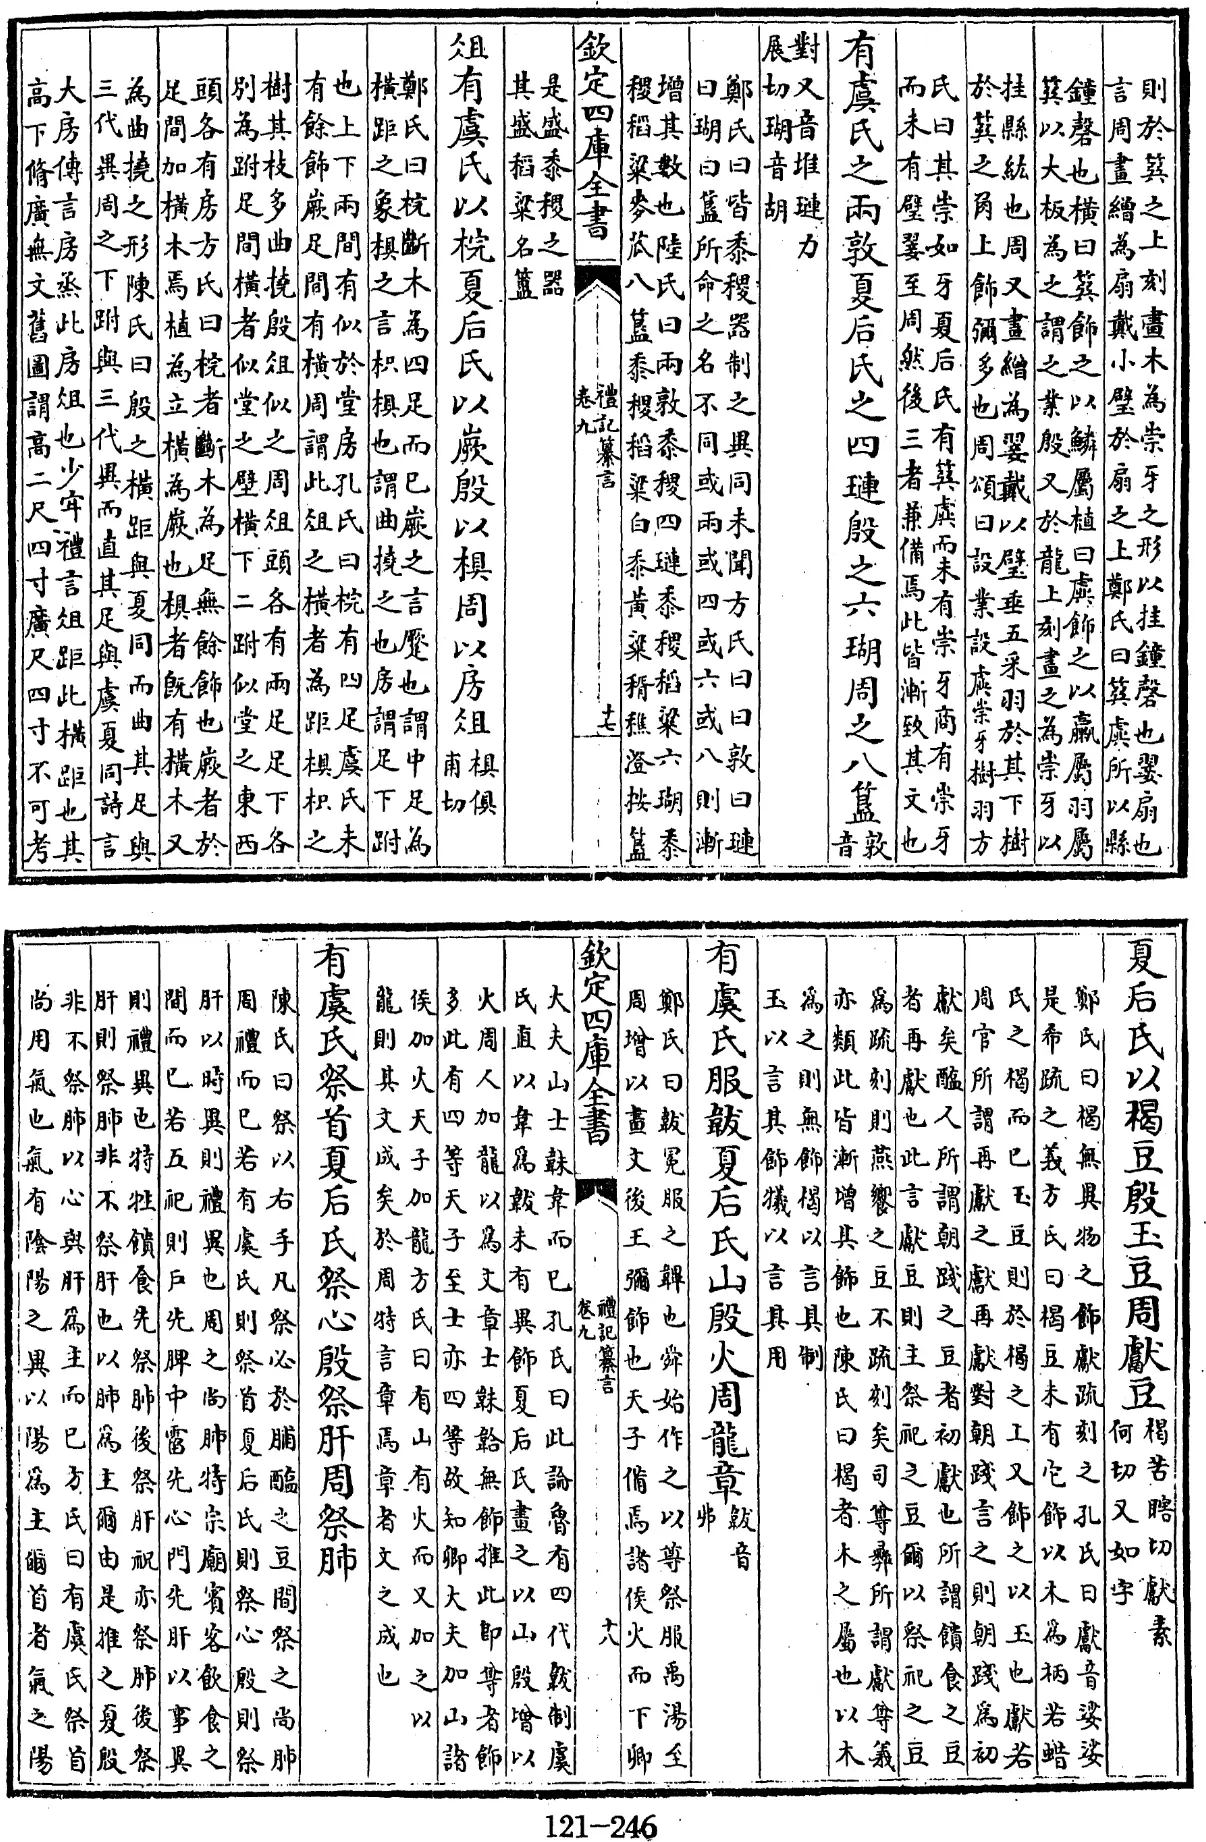 則於簨之上刻畫木為崇牙之形以挂鐘磬也翣扇也
言周畫繒為扇戴小璧於扇之上鄭氏曰簨虡所以縣
鐘磬也橫曰簨飾之以鱗屬植曰虡飾之以臝屬羽屬
簨以大板為之謂之業殷又於龍上刻畫之為崇牙以
挂縣紘也周又畫繒為翣戴以璧垂五采羽於其下樹
於簨之角上飾彌多也周頌曰設業設虡崇牙樹羽方
氏曰其崇如牙夏后氏有簨虡而未有崇牙商有崇牙
而未有璧翣至周然後三者兼備焉此皆漸致其文也
有虞氏之兩敦夏后氏之四璉殷之六瑚周之八簋敦
音
對又音堆璉力
展切瑚音胡
鄭氏曰皆黍稷器制之異同未聞方氏曰曰敦曰璉
曰瑚曰簋所命之名不同或兩或四或六或八則漸
增其數也陸氏曰兩敦黍稷四璉黍稷稻粱六瑚黍
稷稻粱麥苽八簋黍稷稻粱白黍黃粱稰穛澄按簋
欽定四庫全書
禮記纂言
卷九
十七
是盛黍稷之器
其盛稻粱名簠
俎有虞氏以梡夏后氏以嶡殷以椇周以房俎椇俱
甫切
鄭氏曰梡斷木為四足而已嶡之言蹷也謂中足為
橫距之象椇之言枳椇也謂曲撓之也房謂足下跗
也上下兩間有似於堂房孔氏曰梡有四足虞氏未
有餘飾嶡足間有橫周謂此俎之橫者為距椇枳之
樹其枝多曲撓殷俎似之周俎頭各有兩足足下各
別為跗足間橫者似堂之壁橫下二跗似堂之東西
頭各有房方氏曰梡者斷木為足無餘飾也嶡者於
足間加橫木焉植為立橫為嶡也椇者旣有橫木又
為曲撓之形陳氏曰殷之橫距與夏同而曲其足與
三代異周之下跗與三代異而直其足與虞夏同詩言
大房傳言房烝此房俎也少牢禮言俎距此橫距也其
高下脩廣無文舊圖謂高二尺四寸廣尺四寸不可考
夏后氏以楬豆殷玉豆周獻豆楬苦瞎切獻素
何切又如字
鄭氏曰楬無異物之飾獻疏刻之孔氏曰獻音娑娑
是希疏之義方氏曰楬豆未有它飾以木為柄若蜡
氏之楬而已玉豆則於楬之上又飾之以玉也獻若
周官所謂再獻之獻再獻對朝踐言之則朝踐為初
獻矣醢人所謂朝踐之豆者初獻也所謂饋食之豆
者再獻也此言獻豆則主祭祀之豆爾以祭祀之豆
為疏刻則燕饗之豆不疏刻矣司尊彝所謂獻尊義
亦類此皆漸增其飾也陳氏曰楬者木之屬也以木
為之則無飾楬以言其制
玉以言其飾犧以言其用
有虞氏服韍夏后氏山殷火周龍章韍音
弗
鄭氏曰韍冕服之韠也舜始作之以尊祭服禹湯至
周增以畫文後王彌飾也天子備焉諸侯火而下卿
欽定四庫全書
禮記纂言
卷九
十八
大夫山士韎韋而已孔氏曰此論魯有四代韍制虞
氏直以韋為韍未有異飾夏后氏畫之以山殷增以
火周人加龍以為文章士韎韐無飾推此即尊者飾
多此有四等天子至士亦四等故知卿大夫加山諸
侯加火天子加龍方氏曰有山有火而又加之以
龍則其文成矣於周特言章焉章者文之成也
有虞氏祭首夏后氏祭心殷祭肝周祭肺
陳氏曰祭以右手凡祭必於脯醢之豆間祭之尚肺
周禮而已若有虞氏則祭首夏后氏則祭心殷則祭
肝以時異則禮異也周之尚肺特宗廟賓客飲食之
間而已若五祀則戶先脾中霤先心門先肝以事異
則禮異也特牲饋食先祭肺後祭肝祝亦祭肺後祭
肝則祭肺非不祭肝也以肺為主爾由是推之夏殷
非不祭肺以心與肝為主而已方氏曰有虞氏祭首
尚用氣也氣有陰陽之異以陽為主爾首者氣之陽
121-246